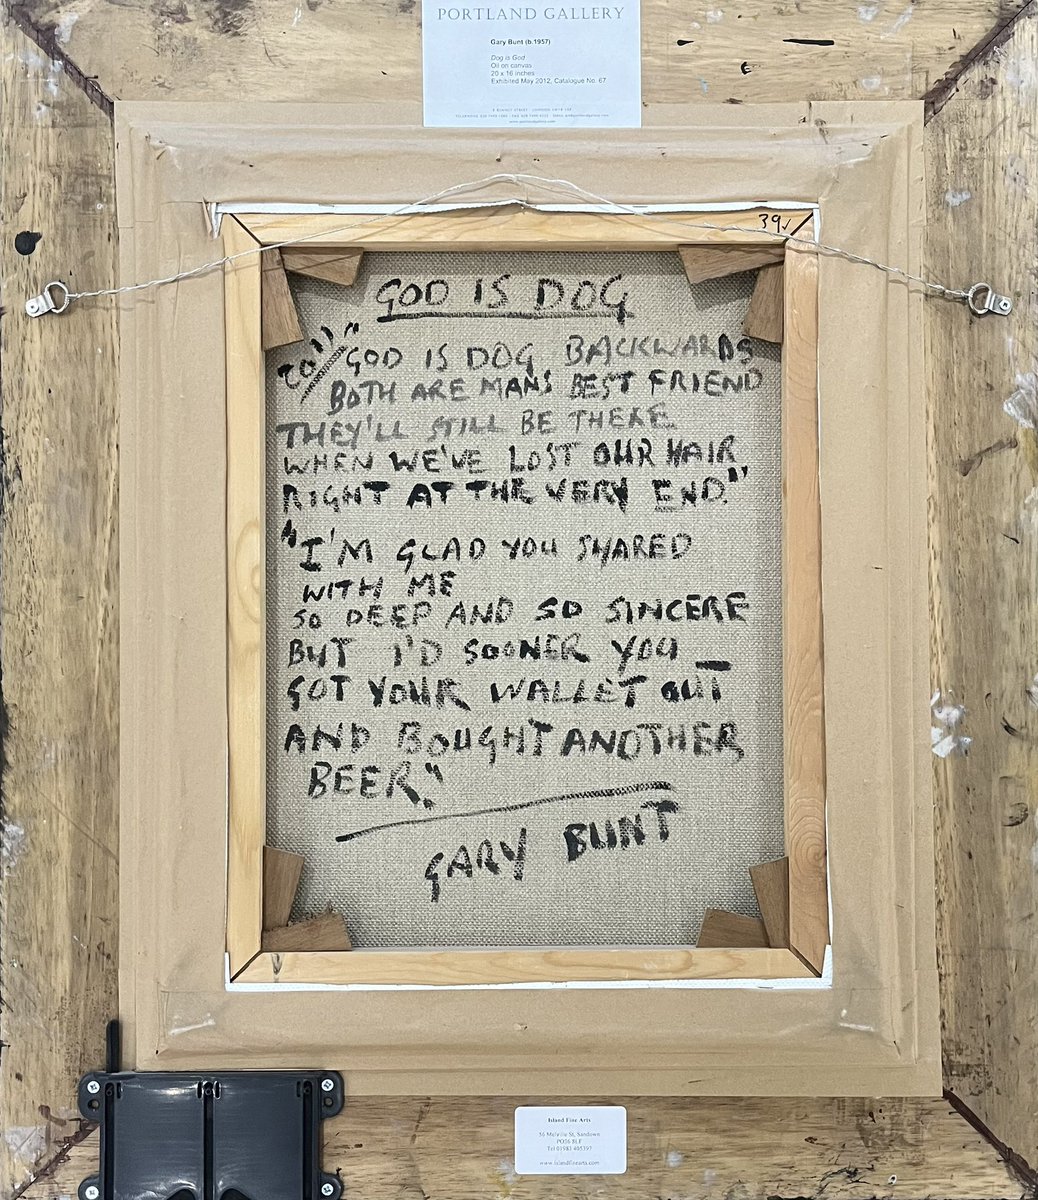 PORTLAND GALLERY
Gary Bunt (b.1957)
Dog is God
Oil on canvas
20 x 16 inches
Exhibited May 2012, Catalogue No. 67
www.portlandgallery.com
39
GOD IS DOG
"GOD IS DOG BACKWARDS
BOTH ARE MANS BEST FRIEND
THEY'LL STILL BE THERE
WHEN WE'VE LOST OUR HAIR
RIGHT AT THE VERY END."
"I'M GLAD YOU SHARED
WITH ME
SO DEEP AND SO SINCERE
BUT I'D SOONER YOU
GOT YOUR WALLET OUT
AND BOUGHT ANOTHER
BEER."
GARY BUNT
Island Fine Arts
Melville St, Sandown
www.islandfinearts.com